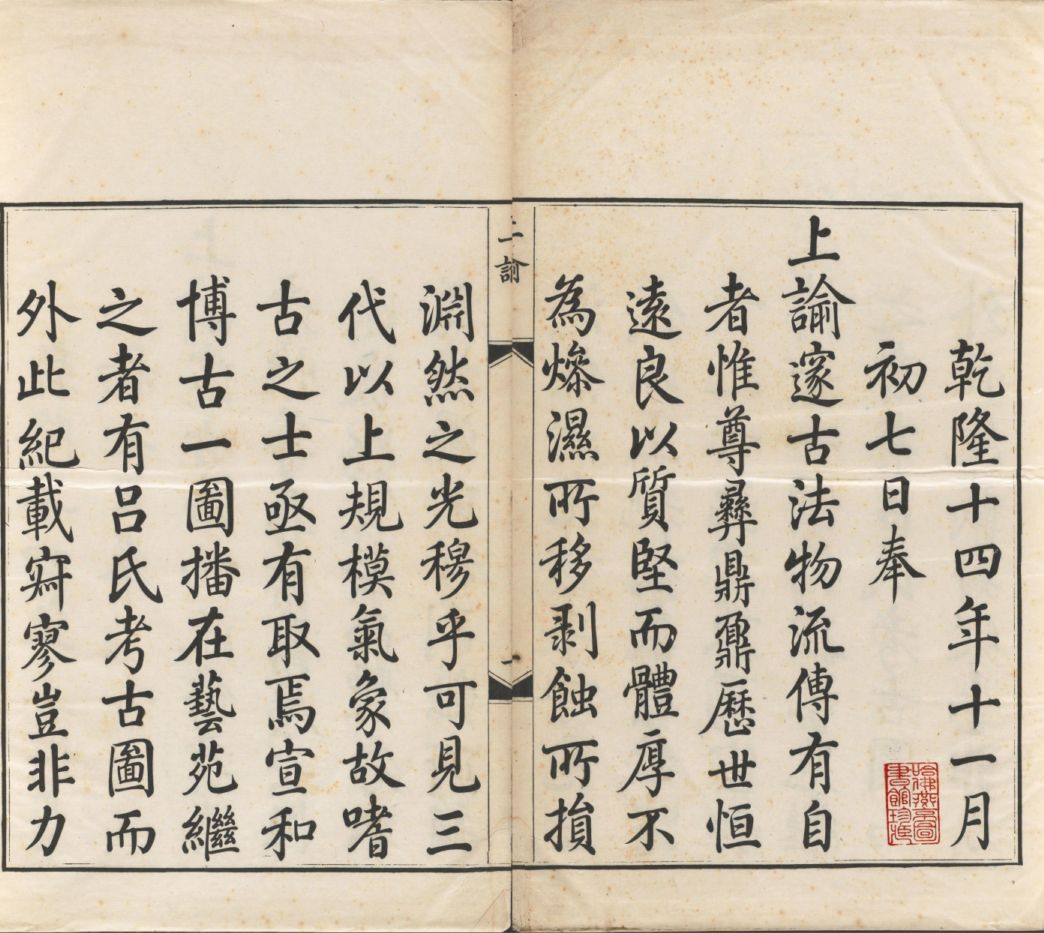 乾隆十四年十一月
初七日奉
上諭邃古法物流傳有自
者惟尊彝鼎鼐歷世恒
遠良以質堅而體厚不
為燥濕所移剥蝕所損
上諭
一
淵然之光穆乎可見三
代以上規模氣象故嗜
古之士亟有取焉宣和
博古一圖播在藝苑繼
之者有呂氏考古圖而
外此紀載寂寥豈非力
哈佛燕京圖
書館珍藏